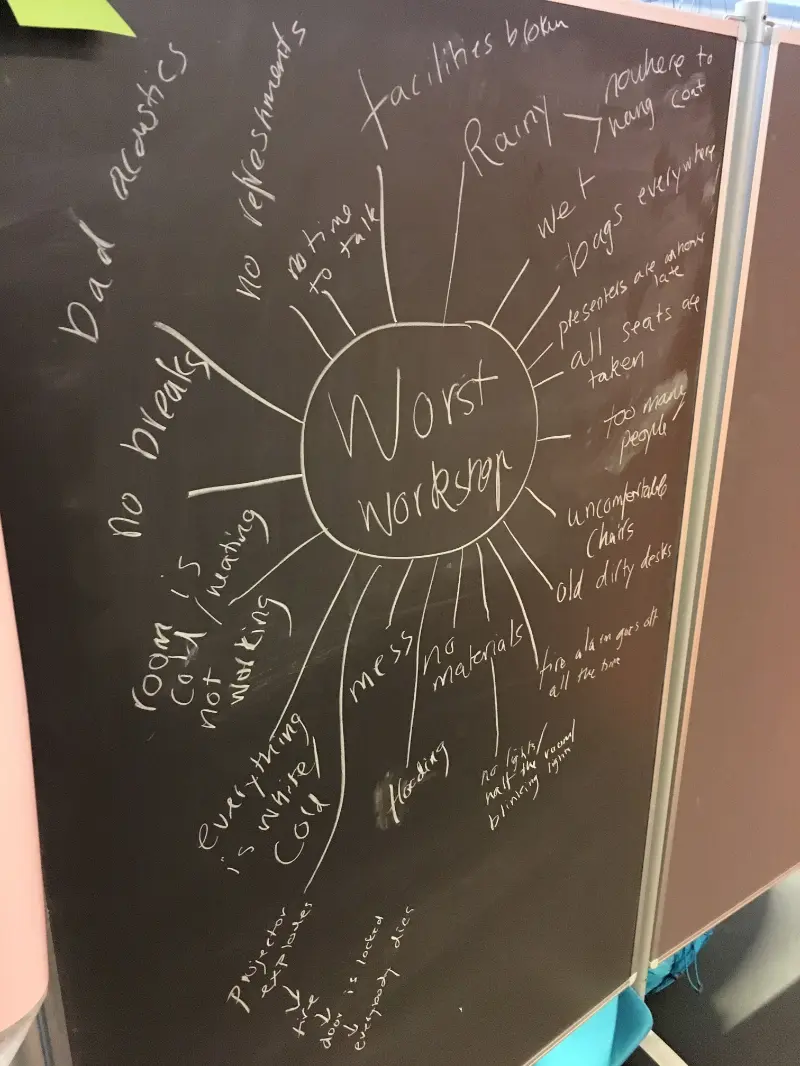 Worst
workshop
facilities broken
Rainy → nowhere to
hang coat
wet
bags everywhere
presenters are an hour
late
all seats are
taken
too many
people
uncomfortable
chairs
old dirty desks
fire alarm goes off
all the time
no materials
no lights/
half the room/
blinking light
flooding
mess
projector
explodes
↓
fire
↓
door is locked
↓
everybody dies
everything
is white/
cold
room is
cold/heating
not
working
no breaks
bad acoustics
no refreshments
no time
to talk